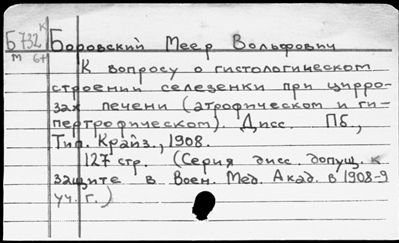 Б 732 к
м 6+
Боровский Меер Вольфович
К вопросу о гистологическом
строении селезенки при цирро-
зах печени (атрофическом и ги-
пертрофическом). Дисс. Пб.,
Тип. Крайз., 1908.
127 стр. (Серия дисс. допущ. к
защите в Воен. Мед. Акад. в 1908-9
уч. г.)